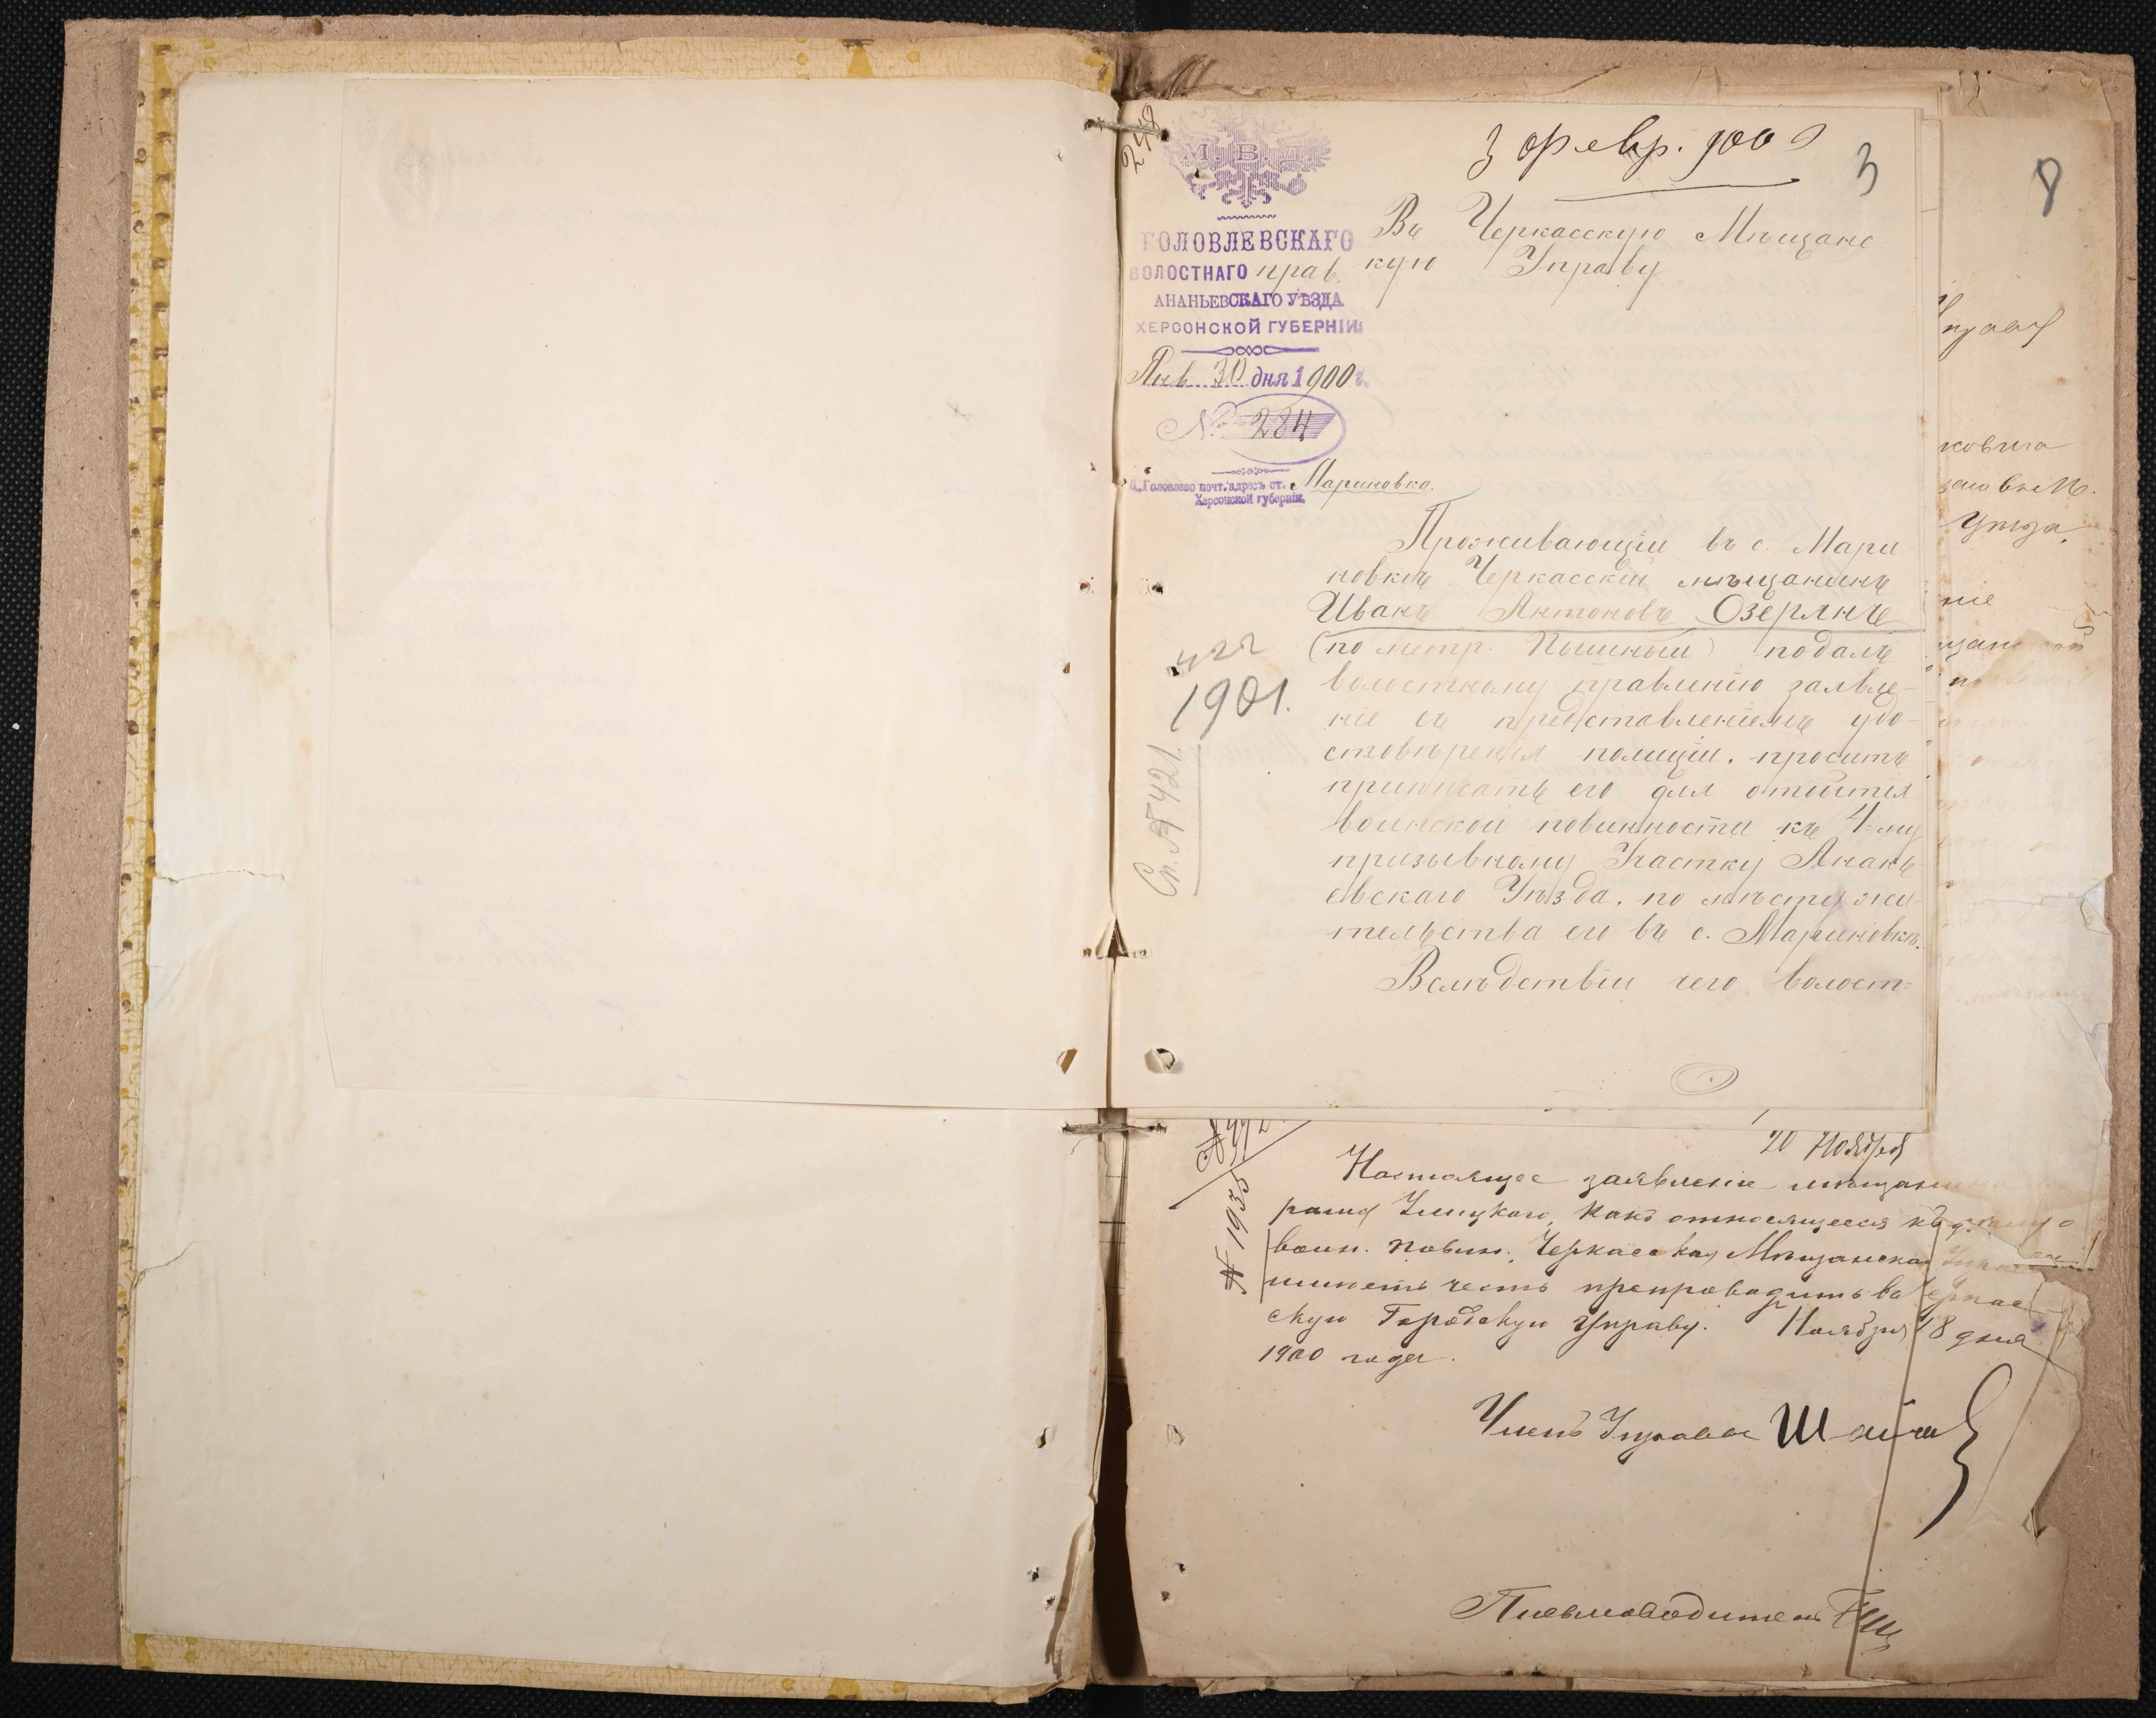 248
М. В. Д.
3 февр. 900
3
8
ГОЛОВЛЕВСКАГО
ВОЛОСТНАГО прав.
АНАНЬЕВСКАГО УѢЗДА
ХЕРСОНСКОЙ ГУБЕРНІИ
Янв 30 дня 1900 г.
№ 284
Головлево почт. адресъ ст. Мариновка.
Херсонской губерніи
Въ Черкасскую Мѣщанс
кую Управу
Проживающій въ с. Мари
новкѣ Черкасскій мѣщанинъ
Иванъ Антоновъ Озерянъ
(по метр. Пышный) подалъ
волостному правленію заявле-
ніе съ представленіемъ удо-
стовѣренія полиціи, проситъ
приписать его для отбытія
воинской повинности къ 4-му
призывному Участку Анань
евскаго Уѣзда, по мѣсту жи
тельства его въ с. Мариновкѣ.
Вслѣдствіи чего волост=
422
1901.
Сп. № 421.
Уѣзда,
ніе
20 Ноября
№ 1935
Настоящее заявленіе мѣщан
относящееся къ
воин. повин., Черкасская Мѣщанская
имѣетъ честь препроводить въ Черкас
скую Городскую Управу. Ноября 18 дня
1900 года.
Членъ Управы
Письмоводитель